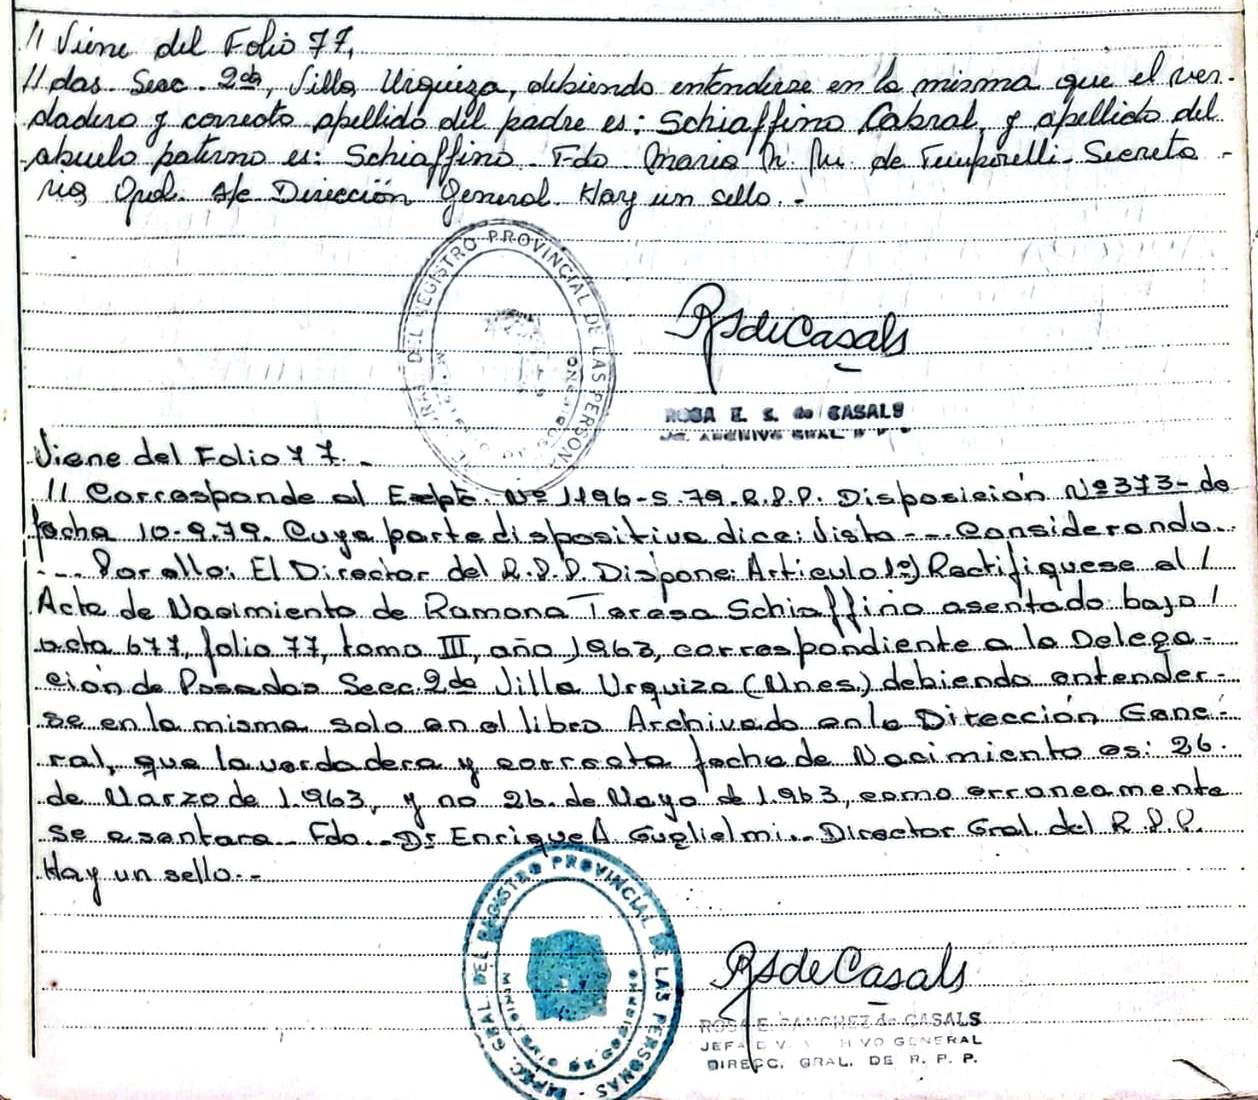 // Viene del Folio 77,
// das. Secc. 2da, Villa Urquiza, debiendo entenderse en la misma que el ver-
dadero y correcto apellido del padre es: Schiaffino Cabral, y apellido del
abuelo paterno es: Schiaffino. Fdo Maria N. M. de Temporelli- Secreta-
ria Gral. a/c Dirección General. Hay un sello.-
DEL REGISTRO PROVINCIAL DE LAS PERSON
RSdeCasals
ROSA E. S. de CASALS
ARCHIVO GRAL
Viene del Folio 77.-
// Corresponde al Expte. Nº 1196-S.79.R.P.P. Disposición Nº 373- de
fecha 10.9.79. Cuya parte dispositiva dice: Visto --- Considerando
--- Por ello: El Director del R.P.P. Dispone: Articulo 1º) Rectifiquese el /
Acta de Nacimiento de Ramona Teresa Schiaffino asentado bajo /
acta 677, folio 77, tomo III, año 1963, correspondiente a la Delega-
ción de Posadas Secc. 2da Villa Urquiza (Mnes.) debiendo entender-
se en la misma solo en el libro Archivado en la Dirección Gene-
ral, que la verdadera y correcta fecha de Nacimiento es: 26
de Marzo de 1.963, y no 26 de Mayo de 1.963, como erroneamente
se asentara. Fdo.- Dr Enrique A. Guglielmi.- Director Gral. del R.P.P.
Hay un sello.-
GRAL DEL REGISTRO PROVINCIAL DE LAS PERSONAS
RSdeCasals
ROSA E. SANCHEZ de CASALS
JEFA DIV. ARCHIVO GENERAL
DIRECC. GRAL. DE R. P. P.